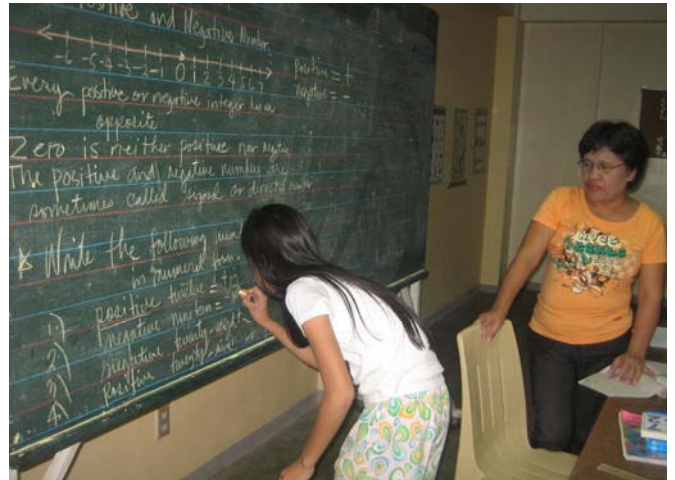 Positive and Negative Number
-6 -5 -4 -3 -2 -1 0 1 2 3 4 5 6 7
positive = +
negative = -
Every positive or negative integer has an
opposite
Zero is neither positive nor negative
The positive and negative number are
sometimes called signed or directed number
* Write the following
in numeral form.
1.) positive twelve = +12
2.) negative nineteen =
3.) negative twenty-eight =
4.) positive twenty-